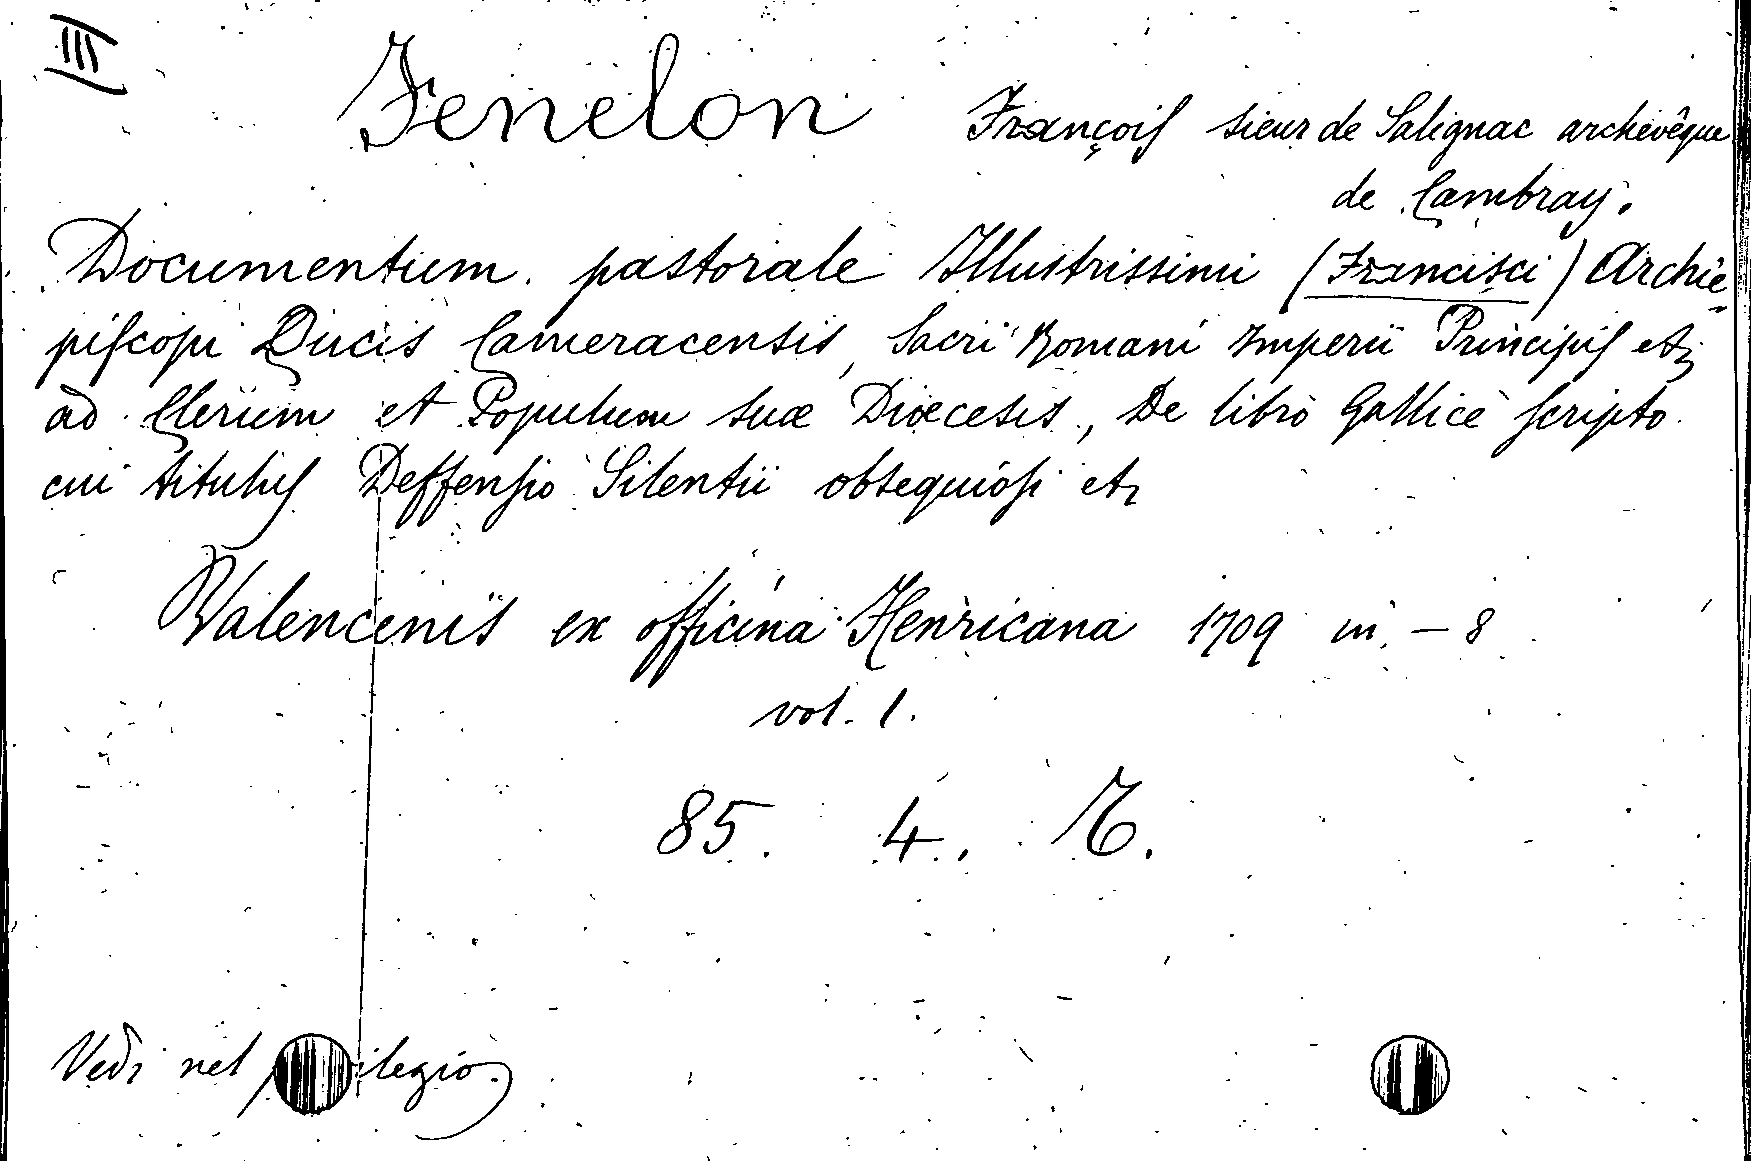 III
Fenelon François sieur de Salignac archevêque
de Cambray.
Documentum pastorale Illustrissimi (Francisci) Archie-
piscopi Ducis Cameracensis, Sacri Romani Imperii Principis etc
ad Clerum et Populum suæ Diœcesis, De libro Gallicè scripto
cui titulus Deffensio Silentii obsequiosi etc
Valencenis ex officina Henricana 1709 in - 8
vol. 1.
85. 4.
Vedi nel